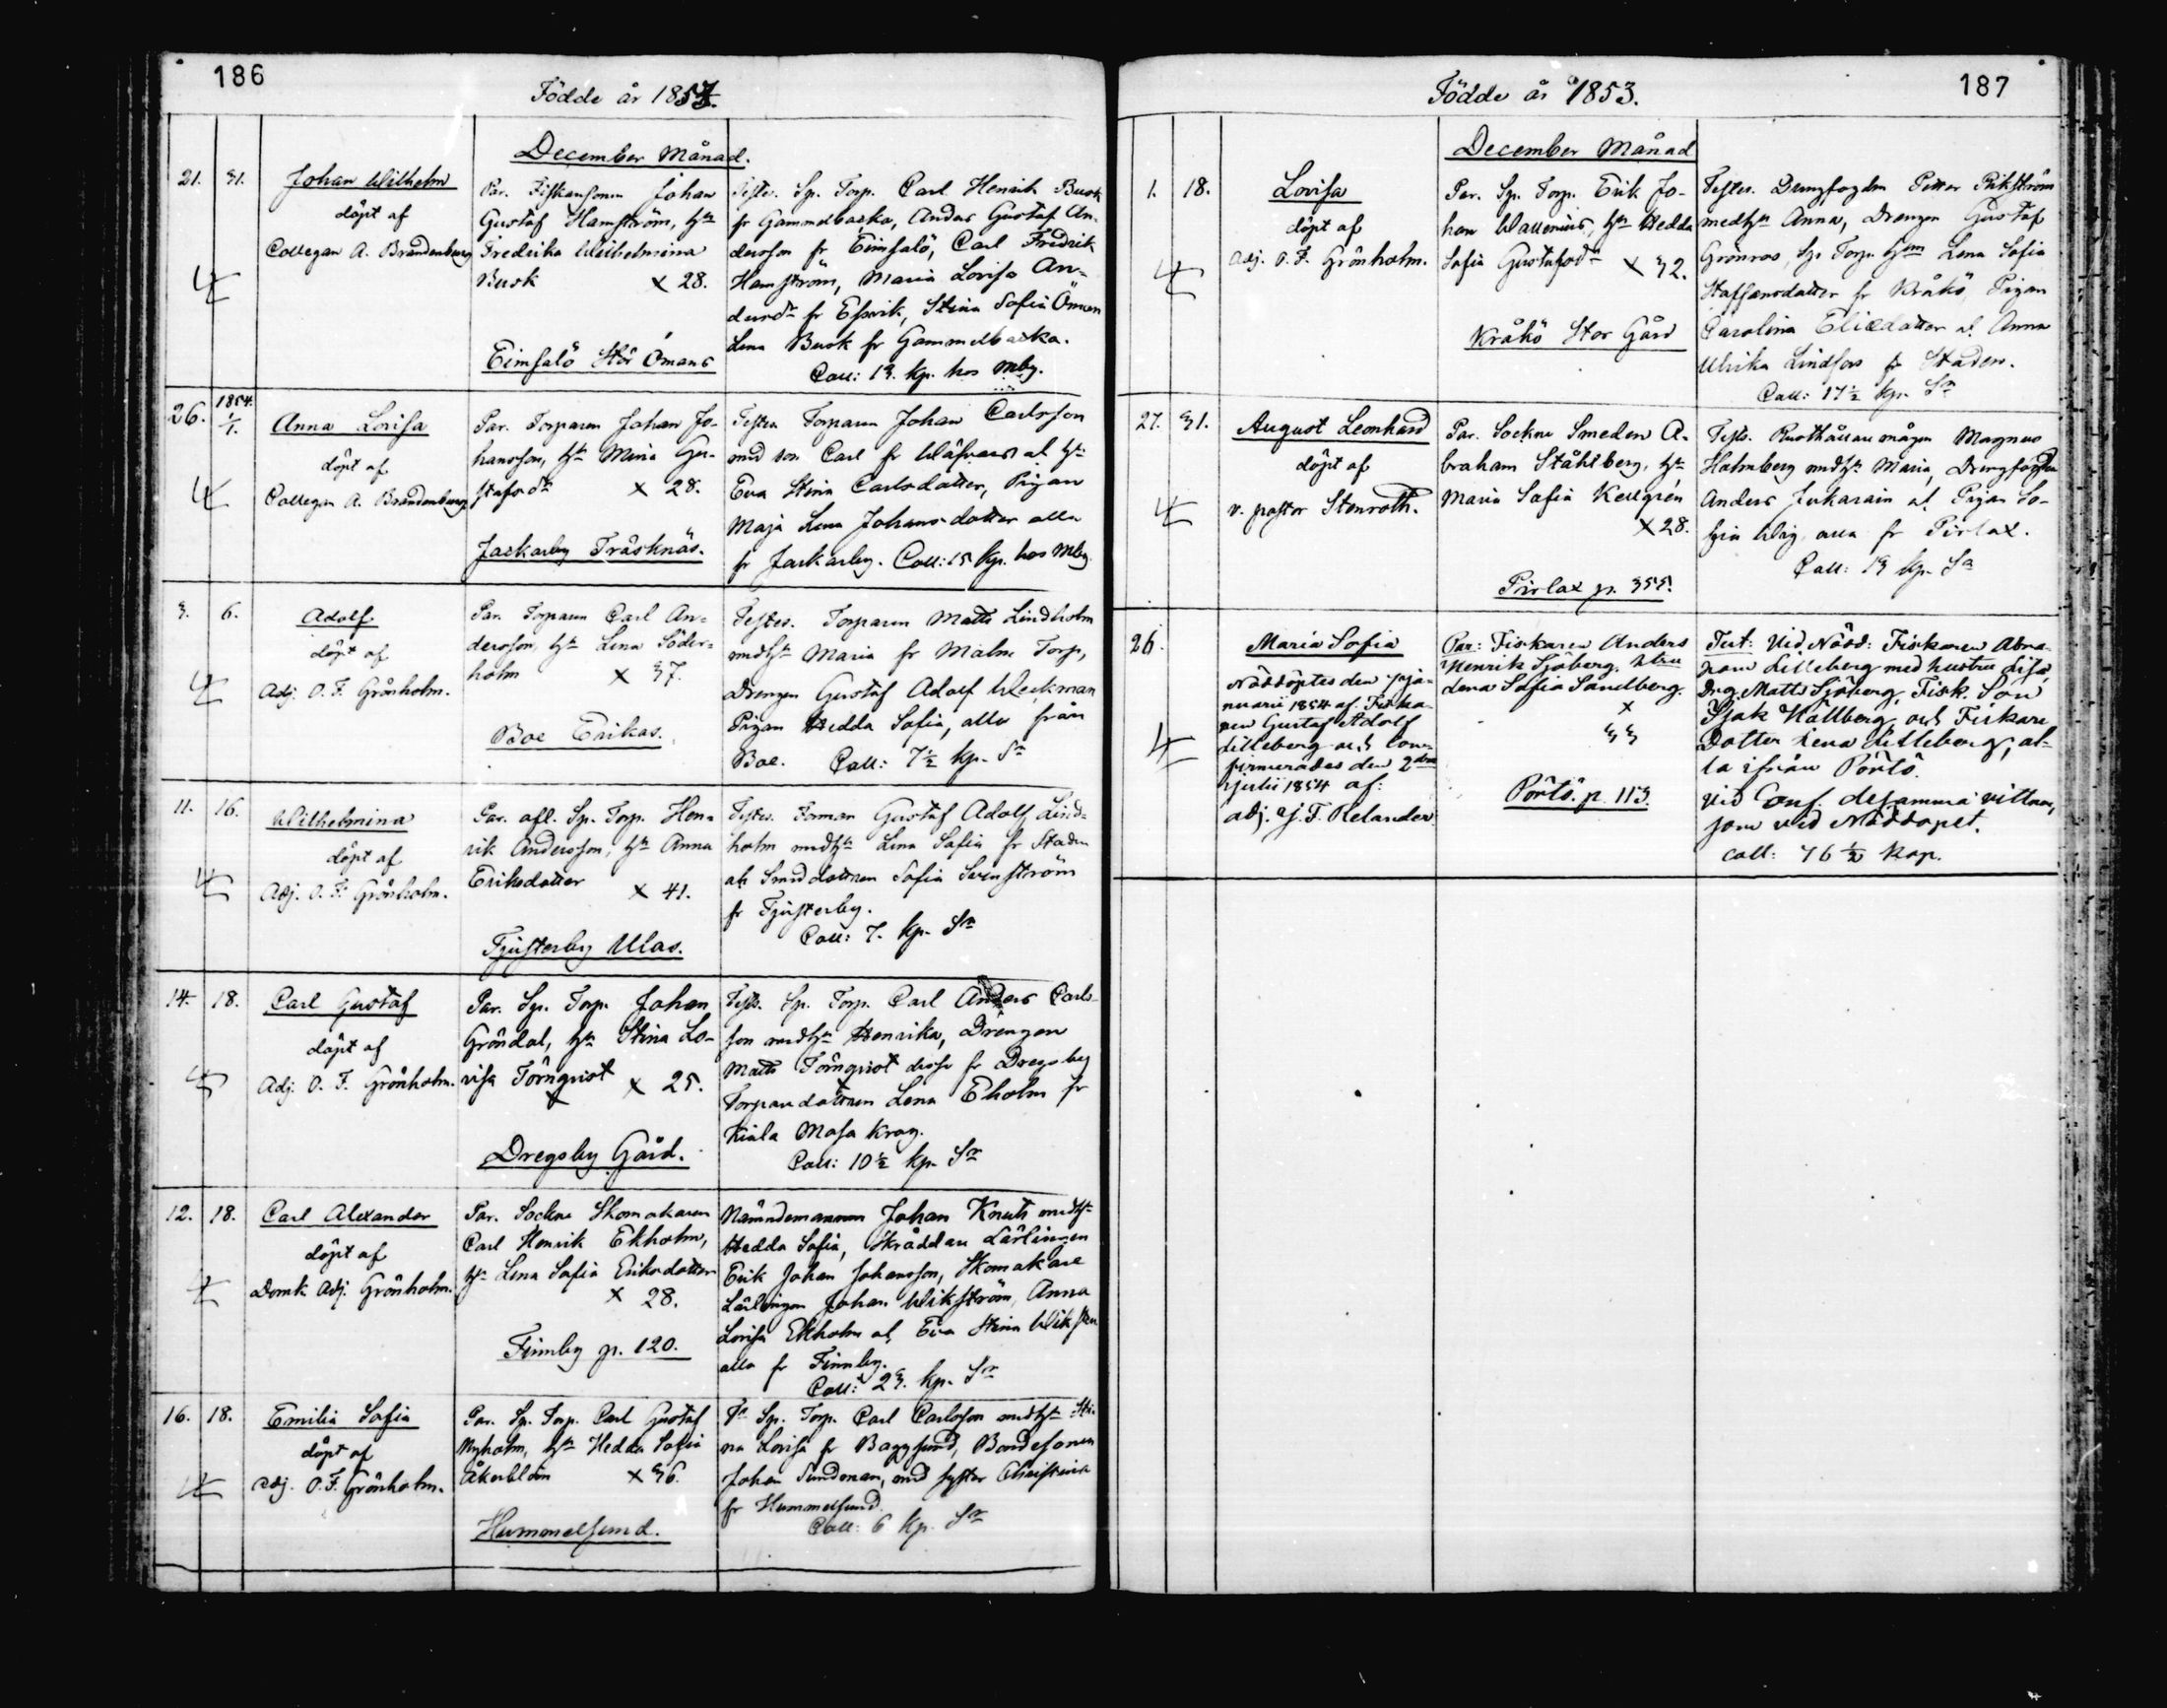 186
Födde år 1853.
December Månad.
21. 31. Johan Wilhelm
döpt af
Collegan A. Brandenburg
Par. Fiskaresonen Johan
Gustaf Hamström, hn
Fredrika Wilhelmina
Busk x 28.
Eimsalö Stor Ömans
Testes. Sp. Torp. Carl Henrik Busk
fr Gammelbacka, Anders Gustaf An-
dersson fr Eimsalö, Carl Fredrik
Hamström, Maria Lovisa An-
dersdr fr Essvik, Stina Sofia Öman
Lena Busk fr Gammelbacka.
Coll: 13. kp. hos Mbg.
26. 1854. 1/1. Anna Lovisa
döpt af
Collegan A. Brandenburg
Par. Torparen Johan Jo-
hansson, hn Mina Gu-
stafsdr x 28.
Jackarby Träsknäs.
Testes Torparen Johan Carlsson
med son Carl fr
Eva Stina Carlsdotter, Pigan
Maja Lena Johansdotter alla
fr Jackarby. Coll: 15 kp. hos Mbg.
3. 6. Adolf.
döpt af
Adj. O. F. Grönholm.
Par. Torparen Carl An-
dersson, hn Lena Söder-
holm x 37.
Boe Erikas.
Testes. Torparen Matts Lindholm
medhn Maria fr Malm Torp,
Drengen Gustaf Adolf Weckman
Pigan Hedda Sofia, alla från
Boe. Coll: 7½ kp. Sr
11. 16. Wilhelmina
döpt af
Adj. O. F. Grönholm.
Par. afl. Sp. Torp. Hen-
rik Andersson, hn Anna
Eriksdotter x 41.
Tjusterby Ulas.
Testes. Forman Gustaf Adolf Lind-
holm medhn Lena Sofia fr Staden
Sofia Svenström
fr Tjusterby.
Coll: 7. kp. Sr
14. 18. Carl Gustaf
döpt af
Adj. O. F. Grönholm.
Par. Sp. Torp. Johan
Gröndal, hn Stina Lo-
visa Törnqvist x 25.
Dregsby Gård.
Testes. Sp. Torp. Carl Anders Carls-
son medhn Henrika, Drengen
Matts Törnqvist desse fr Dregsby
Torparedottren Lena Ekholm fr
Kiala Mosa krog.
Coll: 10½ kp. Sr
12. 18. Carl Alexander
döpt af
Domk. Adj. Grönholm.
Par. Sockne Skomakaren
Carl Henrik Ekholm,
hn Lena Sofia Eriksdotter
x 28.
Finnby p. 120.
Nämndemannen Johan Knuts medhn
Hedda Sofia, Skräddare Lärlingen
Erik Johan Johansson, Skomakare
Lärlingen Johan Wikström, Anna
Lovisa Ekholm Eva Stina
alla fr Finnby.
Coll: 23. kp. Sr
16. 18. Emilia Sofia
döpt af
Adj. O. F. Grönholm.
Par. Sp. Torp. Carl Gustaf
Nyholm, hn Hedda Sofia
Åkerblom x 36.
Hummelsund.
Ts Sp. Torp. Carl Carlsson medhn Sti-
na Lovisa fr Baggsund, Bondesonen
Johan Sundman, med syster Christina
fr Hummelsund.
Coll: 6 kp. Sr
187
Födde år 1853.
December Månad
1. 18. Lovisa
döpt af
Adj. O. F. Grönholm.
Par. Sp. Torp. Erik Jo-
han Wallenius, hn Hedda
Sofia Gustafsdr x 32.
Kråkö Stor Gård
Testes. Drengfogden Petter Rikström
medhn Anna, Drengen Gustaf
Grönroos, Sp. Torp. Lena Sofia
Staffansdotter fr Kråkö, Pigan
Carolina Eliædotter Anna
Ulrika Lindfors fr Staden.
Coll: 17½ kp. Sr
27. 31. August Leonhard
döpt af
v. pastor Stenroth.
Par. Sockne Smeden A-
braham Ståhlberg, hn
Maria Sofia Kellgrén
x 28.
Pirlax p. 355.
Testes. Rusthållare mågen Magnus
Holmberg medhn Maria, Drengfogden
Anders Pigan So-
fia alla fr Pirlax.
Coll: 13 kp. Sr
26. Maria Sofia
Nöddöptes den ja-
nuarii 1854 af Fiska-
ren Gustaf Adolf
Lilleberg och con-
firmerades den 2dra
julii 1854 af:
adj. J. F. Relander.
Par: Fiskaren Anders
Henrik Sjöberg, htru
Lena Sofia Sandberg.
x
33
Pörtö. p. 113.
Test: Vid Nödd: Fiskaren Abra-
ham Lilleberg med hustru Lisa,
Drg. Matts Sjöberg, Fisk. Son
Isak Hällberg, och Fiskare
Dotter Lena Lilleberg, al-
la ifrån Pörtö.
vid Conf. desamma vittnen,
som vid Nöddopet.
coll: 76½ kop.